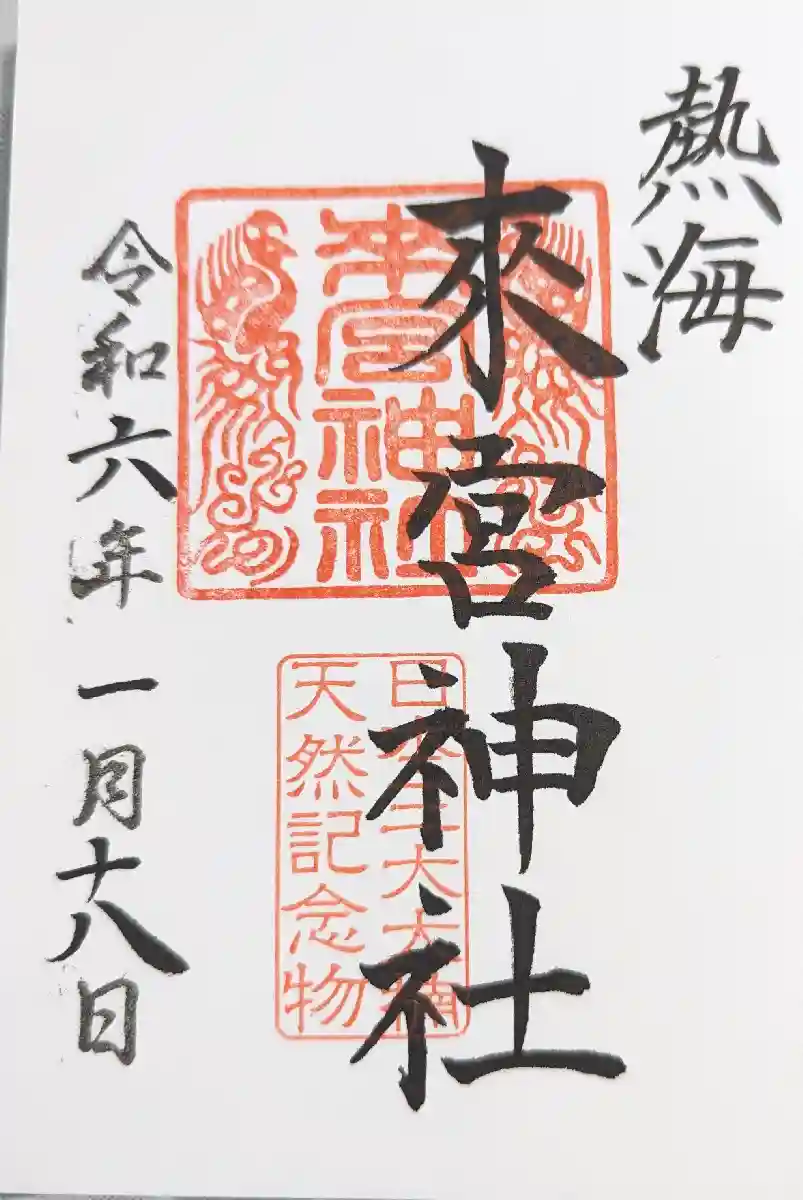 熱海
來宮神社
来宮神社
日本三大大楠
天然記念物
令和六年一月十八日